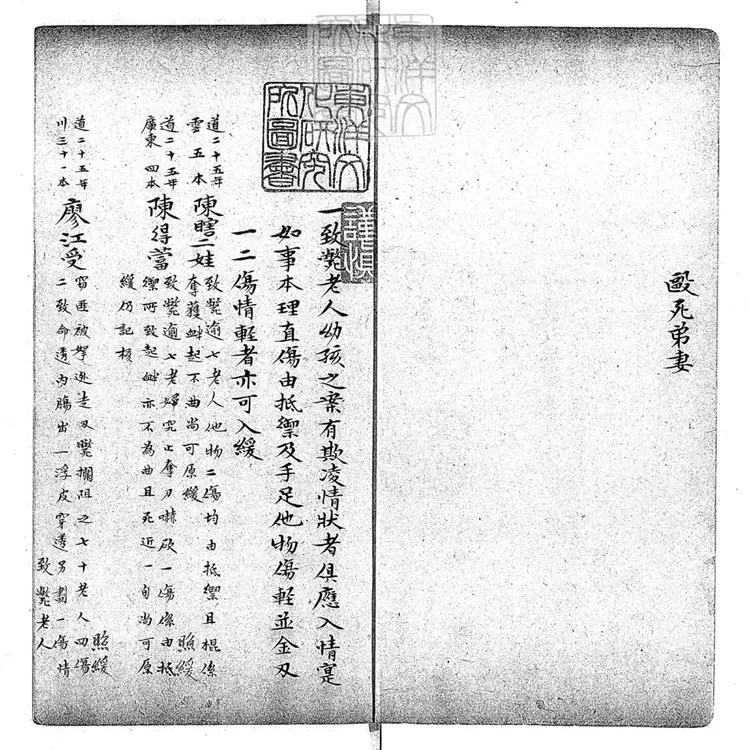 毆死弟妻
東洋文化研究所圖書
謹慎
一致斃老人幼孩之案有欺凌情狀者俱應入情寔
如事本理直傷由抵禦及手足他物傷輕並金刃
一二傷情輕者亦可入緩
道二十五年
雲五本
陳瞎二娃
致斃逾七老人他物二傷均由抵禦且棍係
奪獲衅起不曲尚可原緩
照緩
道二十五年
廣東四本
陳得
致斃逾七老婦究止奪刀嚇砍一傷係由抵
禦所致起衅亦不為曲且死近一旬尚可原
緩仍記核
照緩
道二十五年
川三十一本
廖江受
竊匪被拏逃走刃斃攔阻之七十老人四傷
二致命透內腸出一浮皮穿透另劃一傷情
致斃老人